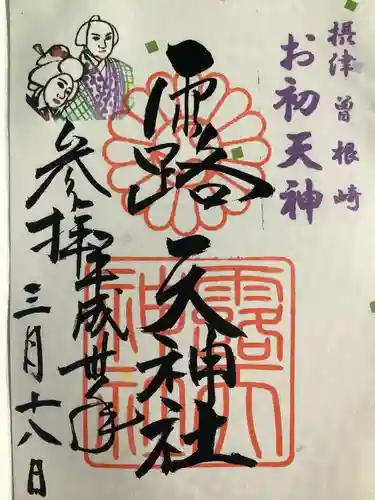 摂津 曽根崎
お初天神
露天神社
参拝
平成卅年
三月十八日
露天神社